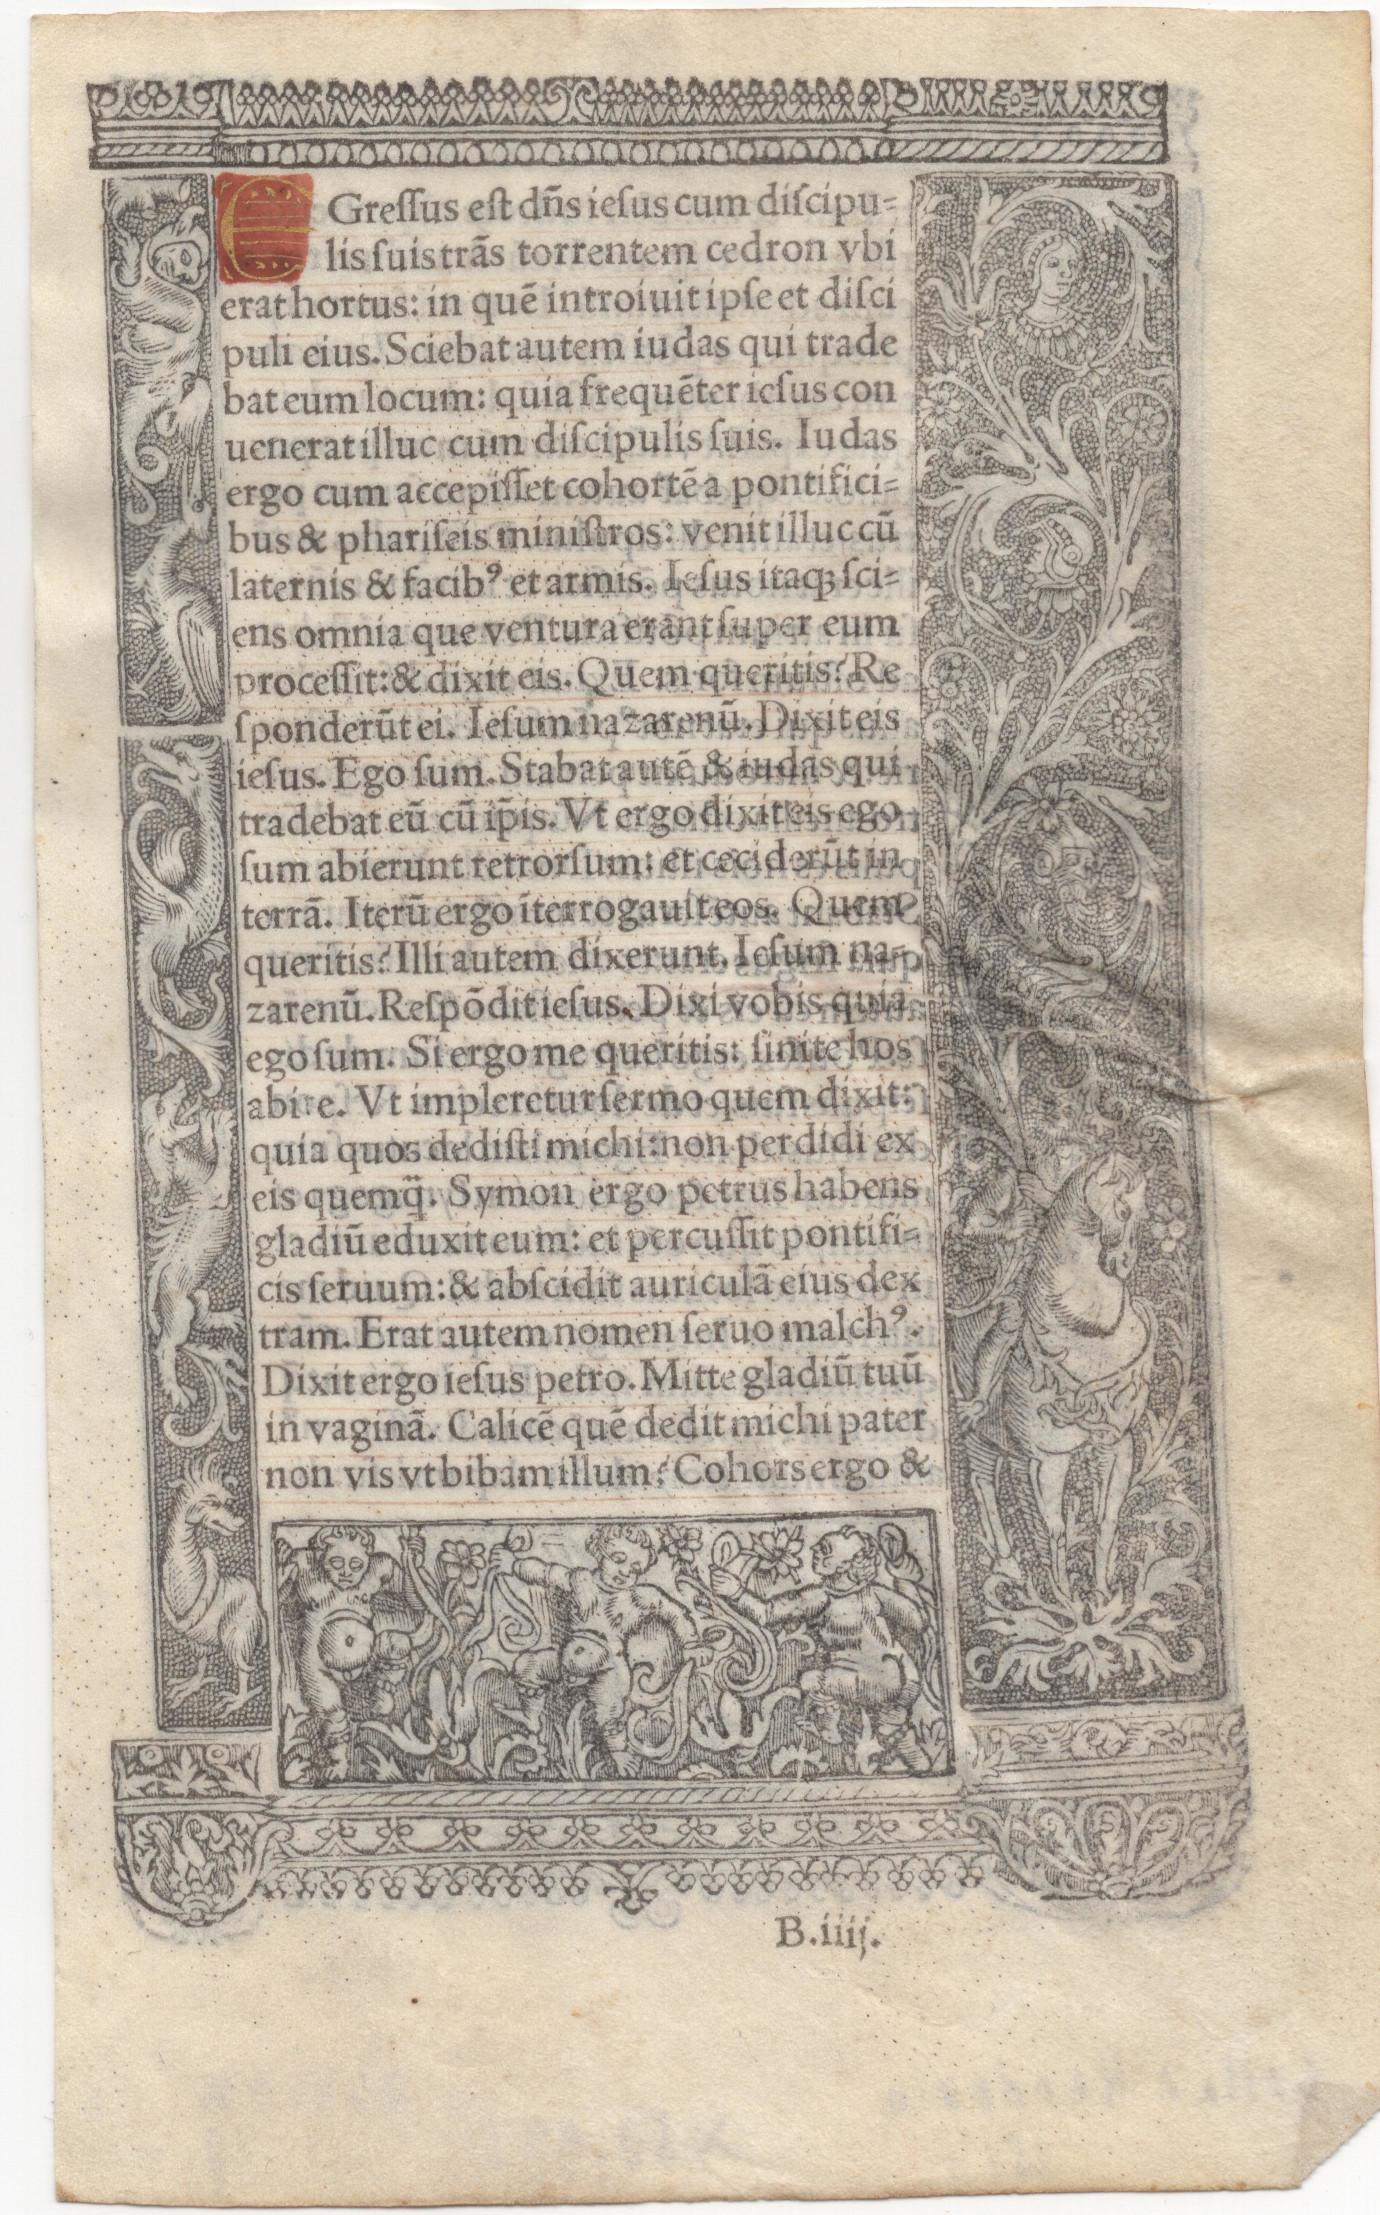 EGreſſus eſt dn̄s ieſus cum diſcipu=
lis ſuis trās torrentem cedron vbi
erat hortus: in quē introiuit ipſe et diſci
puli eius. Sciebat autem iudas qui trade
bat eum locum: quia frequēter ieſus con
uenerat illuc cum diſcipulis ſuis. Iudas
ergo cum accepiſſet cohortē a pontifici=
bus & phariſeis miniſtros: venit illuc cū
laternis & facibꝰ et armis. Ieſus itaqꝫ ſci=
ens omnia que ventura erant ſuper eum
proceſſit: & dixit eis. Quem queritis? Re
ſponderūt ei. Ieſum nazarenū. Dixit eis
ieſus. Ego ſum. Stabat autē & iudas qui
tradebat eū cū ip̄is. Vt ergo dixit eis ego
ſum abierunt retrorſum: et ceciderūt in
terrā. Iterū ergo īterrogauit eos. Quem
queritis? Illi autem dixerunt. Ieſum na=
zarenū. Reſpōdit ieſus. Dixi vobis quia
ego ſum. Si ergo me queritis: ſinite hos
abire. Vt impleretur ſermo quem dixit:
quia quos dediſti michi: non perdidi ex
eis quemq̄. Symon ergo petrus habens
gladiū eduxit eum: et percuſſit pontifi=
cis ſeruum: & abſcidit auriculā eius dex
tram. Erat autem nomen ſeruo malchꝰ.
Dixit ergo ieſus petro. Mitte gladiū tuū
in vaginā. Calicē quē dedit michi pater
non vis vt bibam illum? Cohors ergo &
B.iiij.